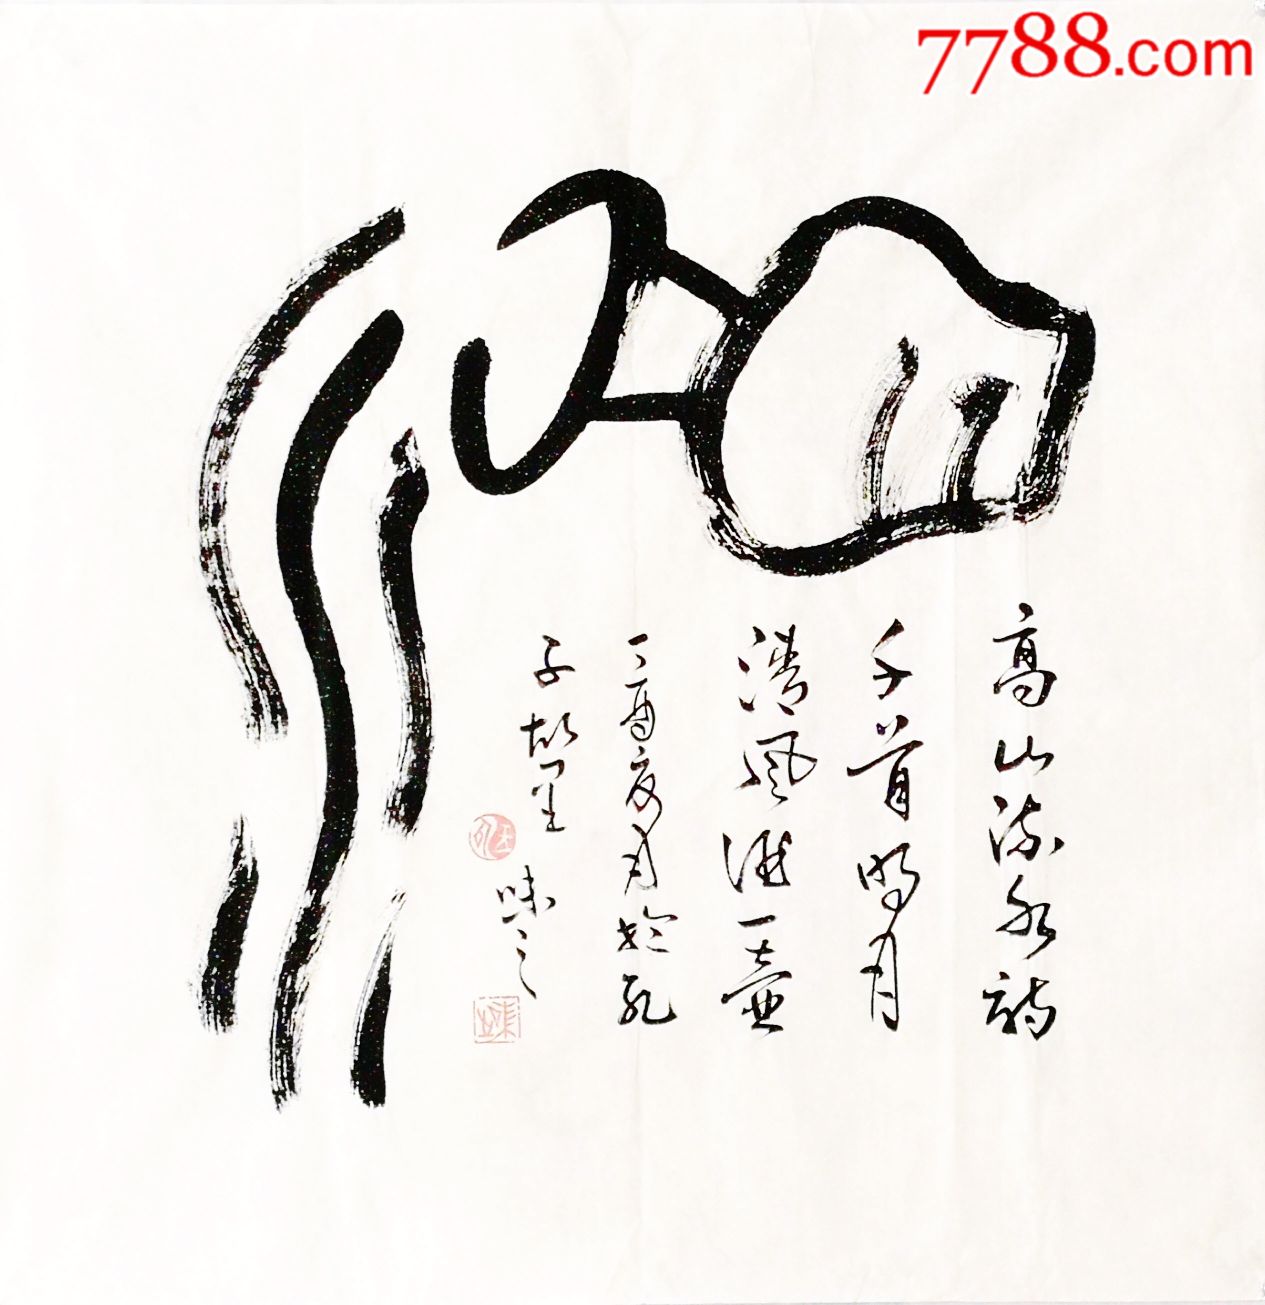 7788.com
高山流水诗
千首明月
清风酒一壶
丁酉夏月於孔
子故里
味之